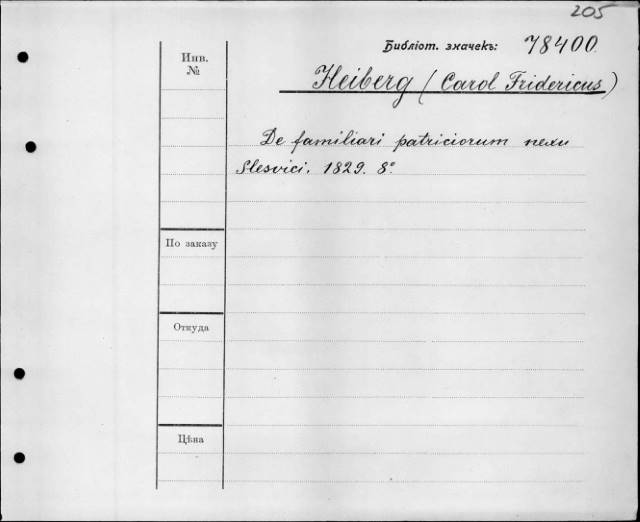 205
Библіот. значекъ: 78400
Инв. №
Heiberg (Carol Fridericus)
De familiari patriciorum nexu
Slesvici. 1829. 8°
По заказу
Откуда
Цѣна